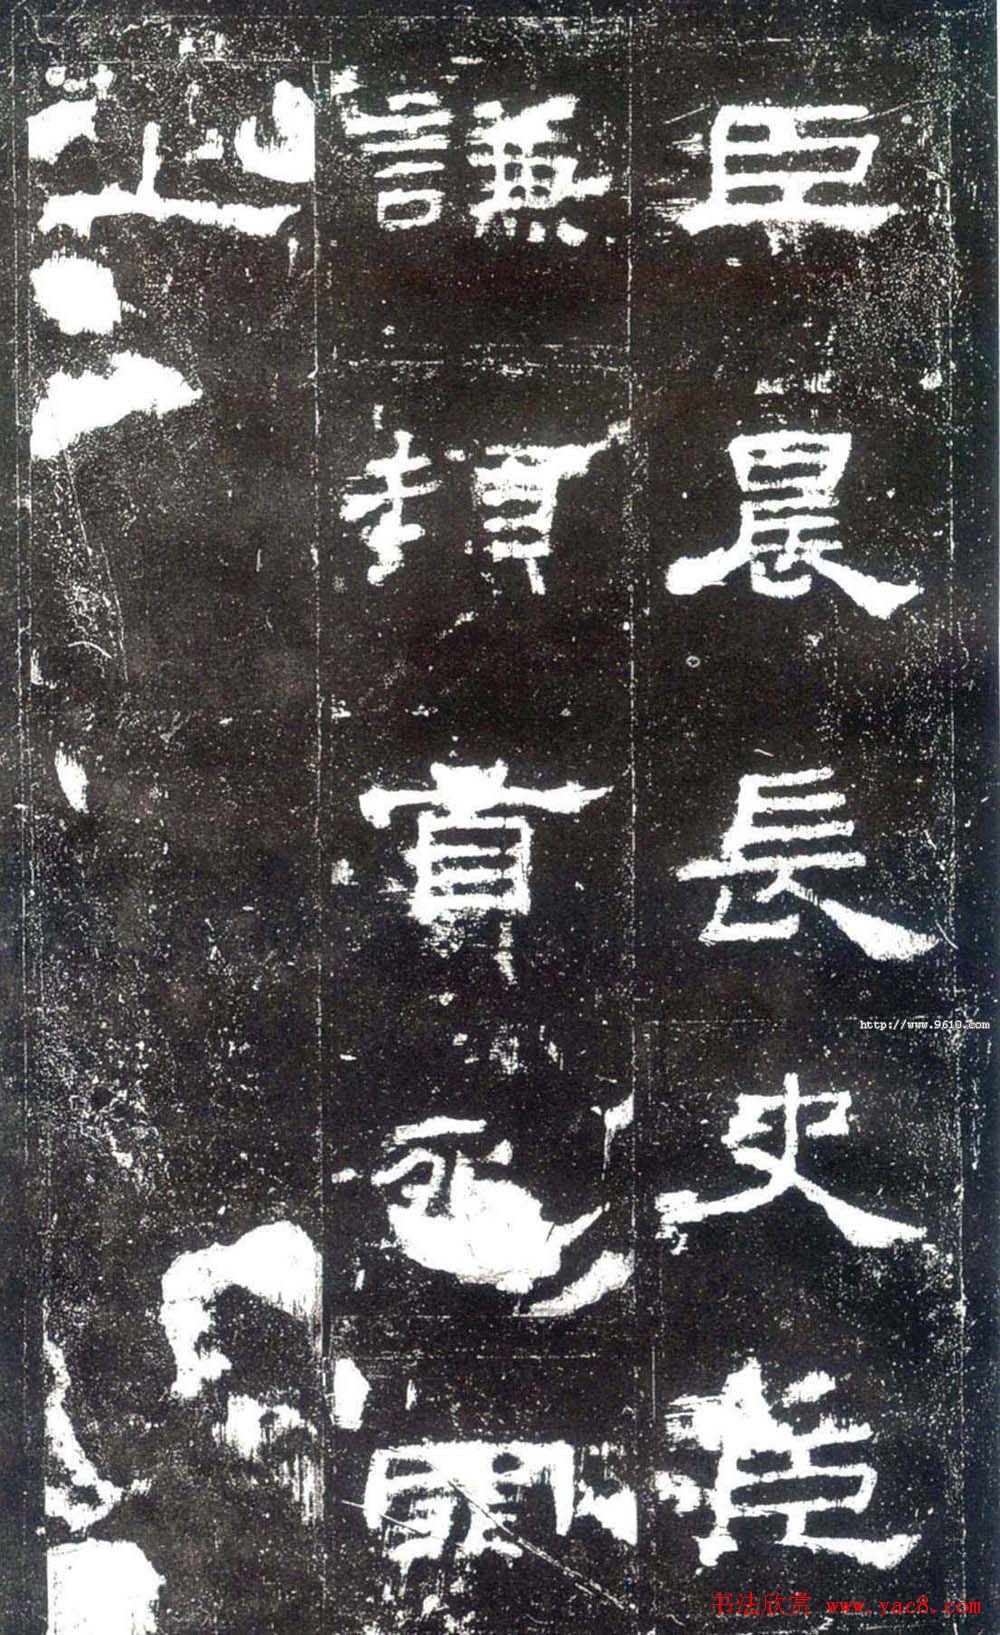 臣晨長史臣
謙頓首死罪
上
http://www.9610.com
书法欣赏 www.yac8.com